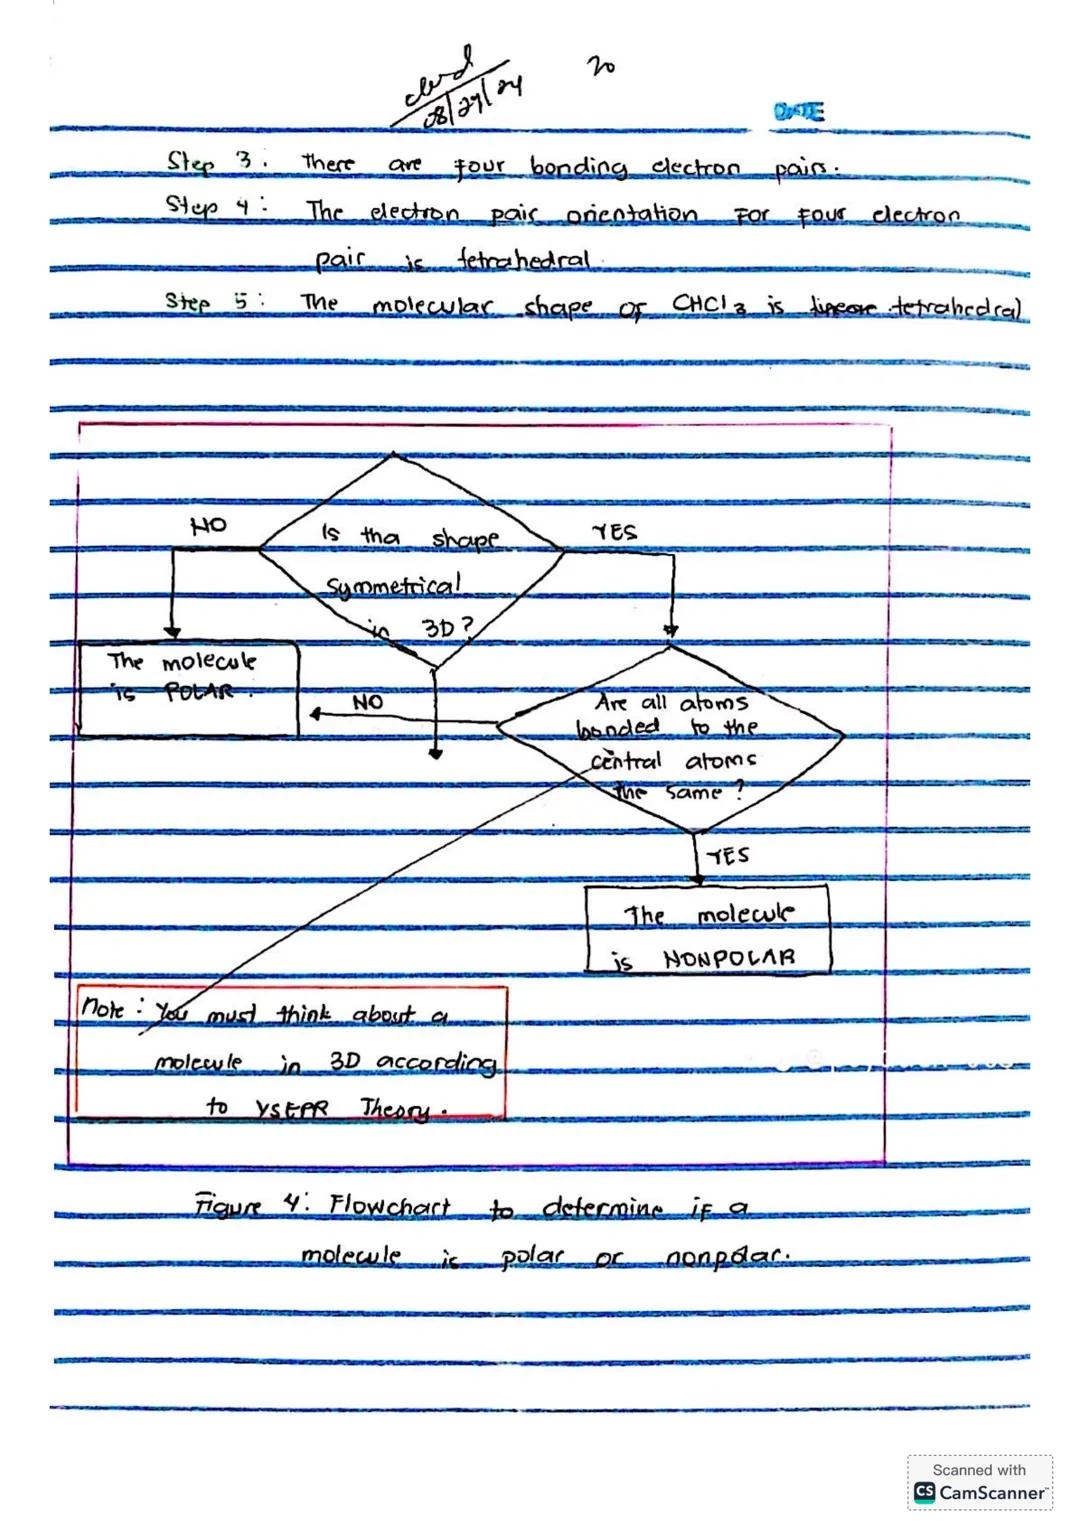 08/29/24
20
DATE
Step 3: There are four bonding electron pairs.
Step 4: The electron pair orientation For Four electron
pair is tetrahedral.
Step 5: The molecular shape of CHCl3 is linear tetrahedral
NO
Is tha shape
symmetrical
in 3D?
YES
The molecule
is POLAR.
NO
Are all atoms
bonded to the
central atoms
the same?
YES
The molecule
is NONPOLAR
Note: You must think about a
molecule in 3D according
to VSEPR Theory.
Figure 4: Flowchart to determine if a
molecule is polar or nonpolar.
Scanned with
CS CamScanner